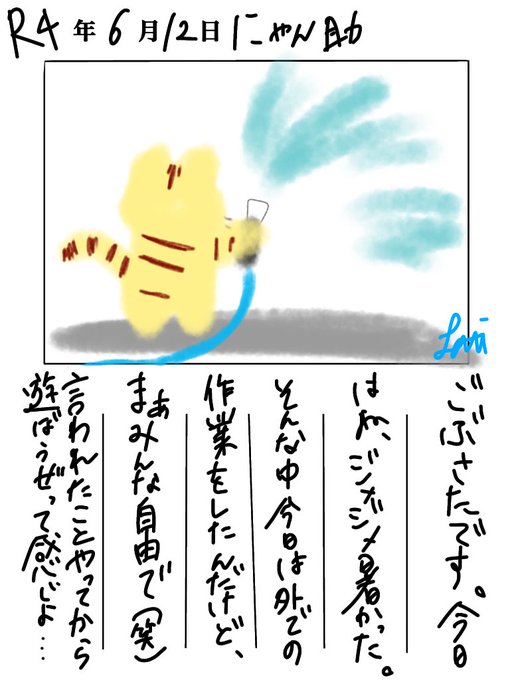 R4年6月12日にゃん助
ごぶさたです。今日
はね、ジメジメ暑かった。
そんな中今日は外での
作業をしたんだけど、
まぁみんな自由で(笑)
言われたことやってから
遊ばうぜって感じよ…